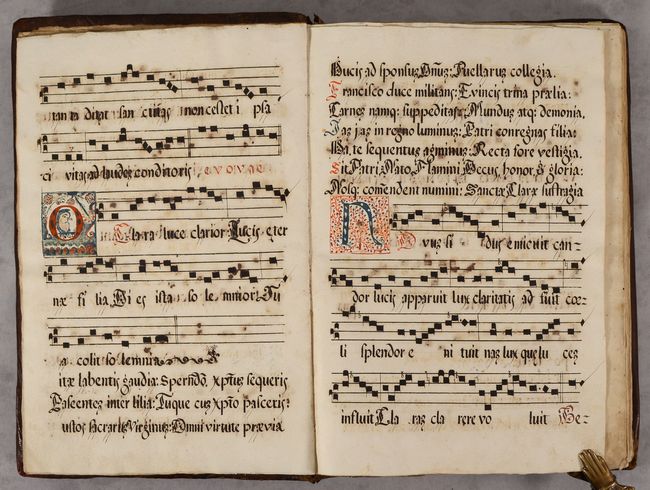 tan ta ditat san ctitas non cesset i psa
ci vitas ad laudes conditoris e v o v a e
O Clara luce clarior: Lucis eter
næ fi lia, Di es ista so le mnior: Tu
a colit so lemnia
itæ labentis gaudia: Sperndo, xptus sequeris
Pascentem inter lilia: Tuque cus xpto pasceris:
ustos sacrarts Virginus: Omni virtute prævia
Ducis ad sponsus Dnus: Puellarus collegia.
Francisco duce militans: Evincis trina prælia:
Carnes namq: suppeditas: Mundus atq: demonia.
as in regno luminus: Patri conregnas filia:
te sequentus agminus: Recta fore vestigia.
Sit Patri, Nato, Flammini Decus, honor, & gloria:
Nosq: comendent numini: Sanctæ Claræ suffragia
N O vus si dus emicuit can-
dor lucis apparuit lux claritatis ad fuit coe-
li splendor e ni tuit nas lux que lu ces
influit Cla ras cla rere vo luit He-